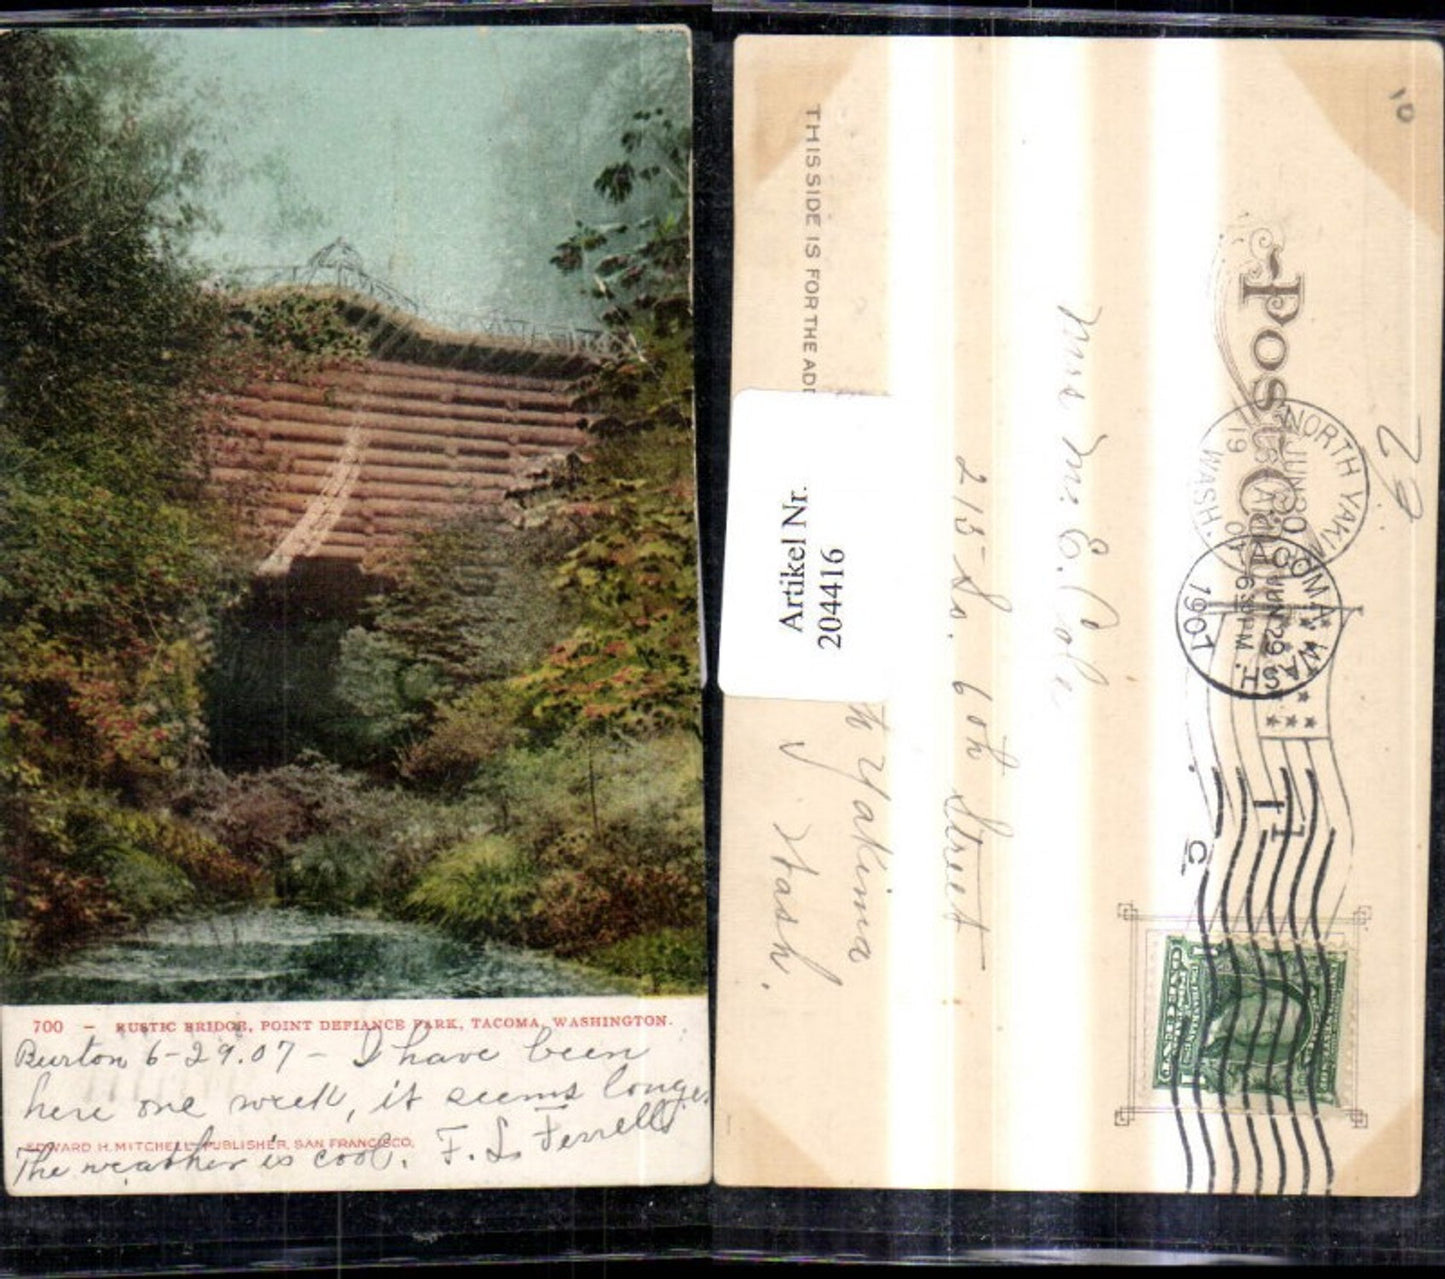 700 - RUSTIC BRIDGE, POINT DEFIANCE PARK, TACOMA, WASHINGTON.
Burton 6-29.07 - I have been
here one week, it seems longer
EDWARD H. MITCHELL, PUBLISHER, SAN FRANCISCO.
The weather is cool. F. L. Ferrell
POST CARD
NORTH YAKI
JUN 30
19 0
WASH.
TACOMA, WASH.
JUN 29
6 30 PM
1907
Mrs M. E. Cole
215 So. 6th Street
h Yakima
Wash.
THIS SIDE IS FOR THE AD
Artikel Nr.
204416
10